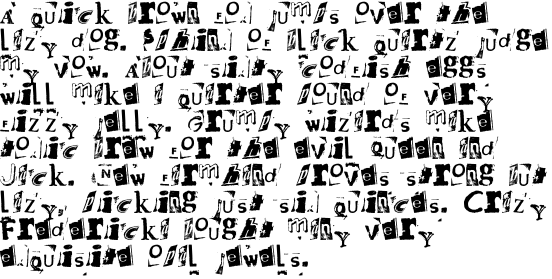 A quick brown fox jumps over the
lazy dog. Sphinx of black quartz judge
my vow. About sixty codfish eggs
will make a quarter pound of very
fizzy jelly. Grumpy wizards make
toxic brew for the evil queen and
Jack. New farmhand proves strong but
lazy, picking just six quinces. Crazy
Fredericka bought many very
exquisite opal jewels.